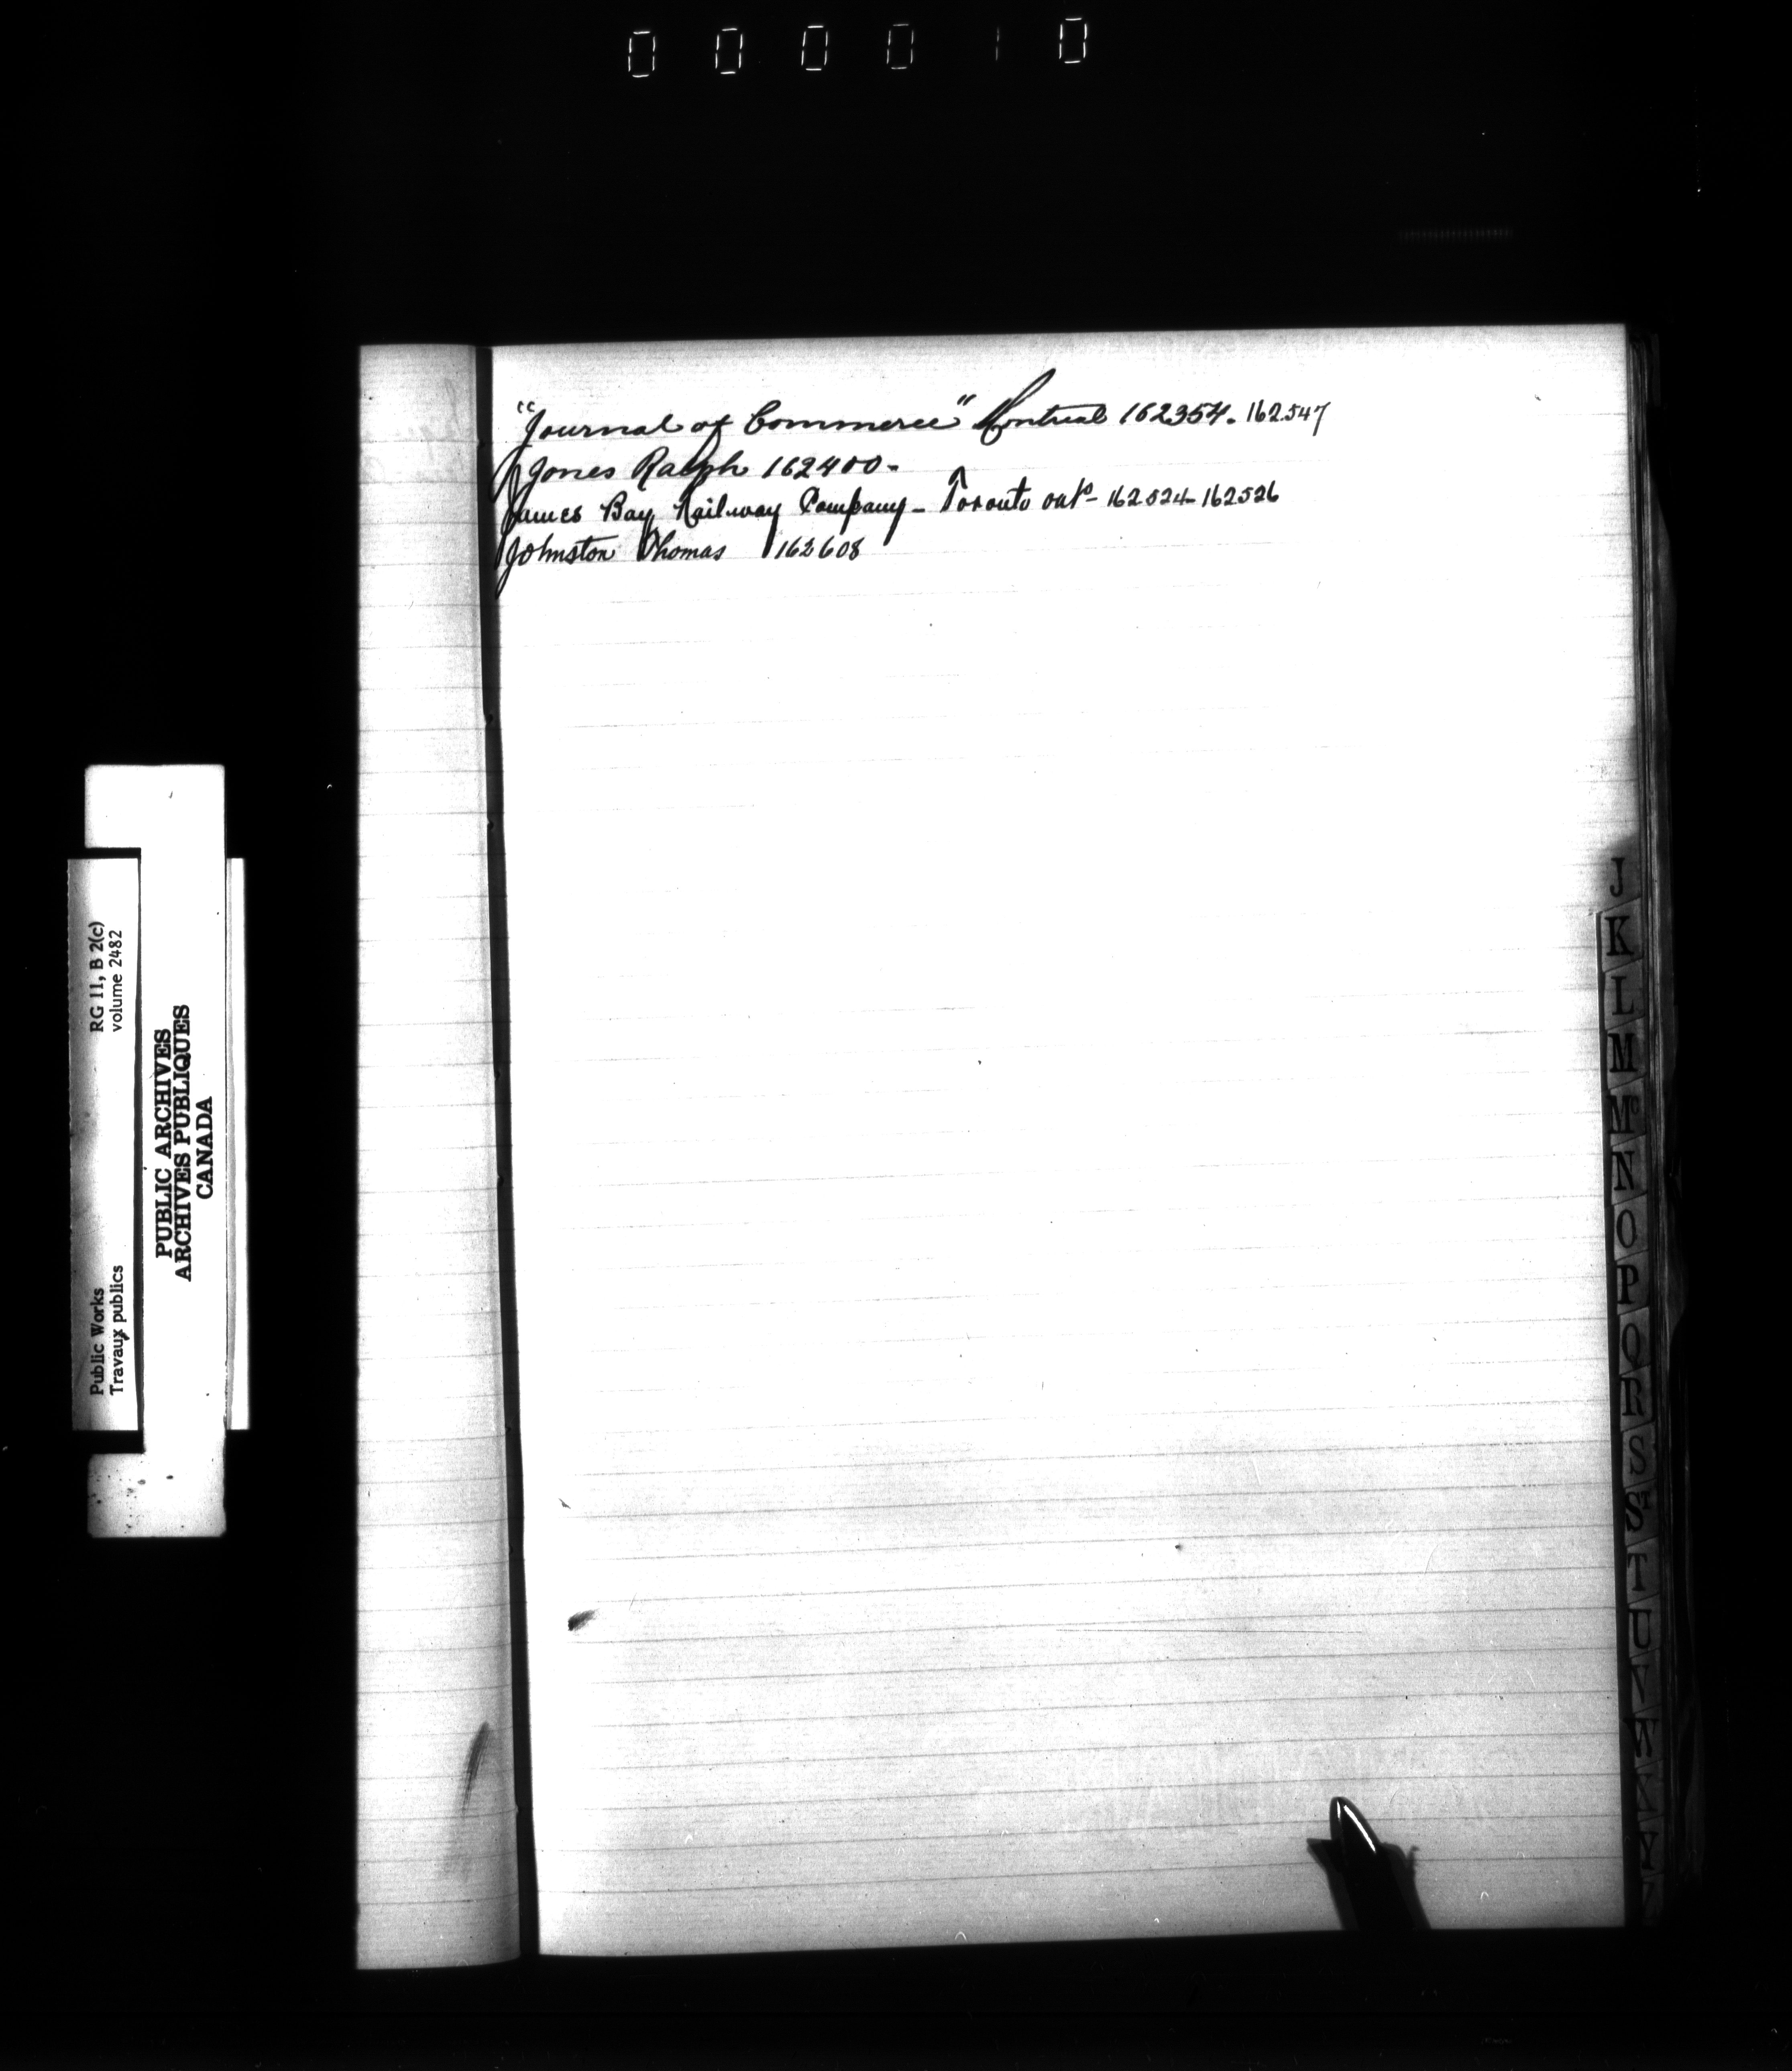 0 0 0 0 1 0
"Journal of Commerce" Montreal 162354. 162547
Jones Ralph 162400-
James Bay Railway Company - Toronto Ont- 162524-162526
Johnston Thomas 162608
J
K
L
M
Mc
N
O
P
Q
R
S
S
T
U
V
W
X
Y
RG 11, B 2(c)
volume 2482
Public Works
Travaux publics
PUBLIC ARCHIVES
ARCHIVES PUBLIQUES
CANADA